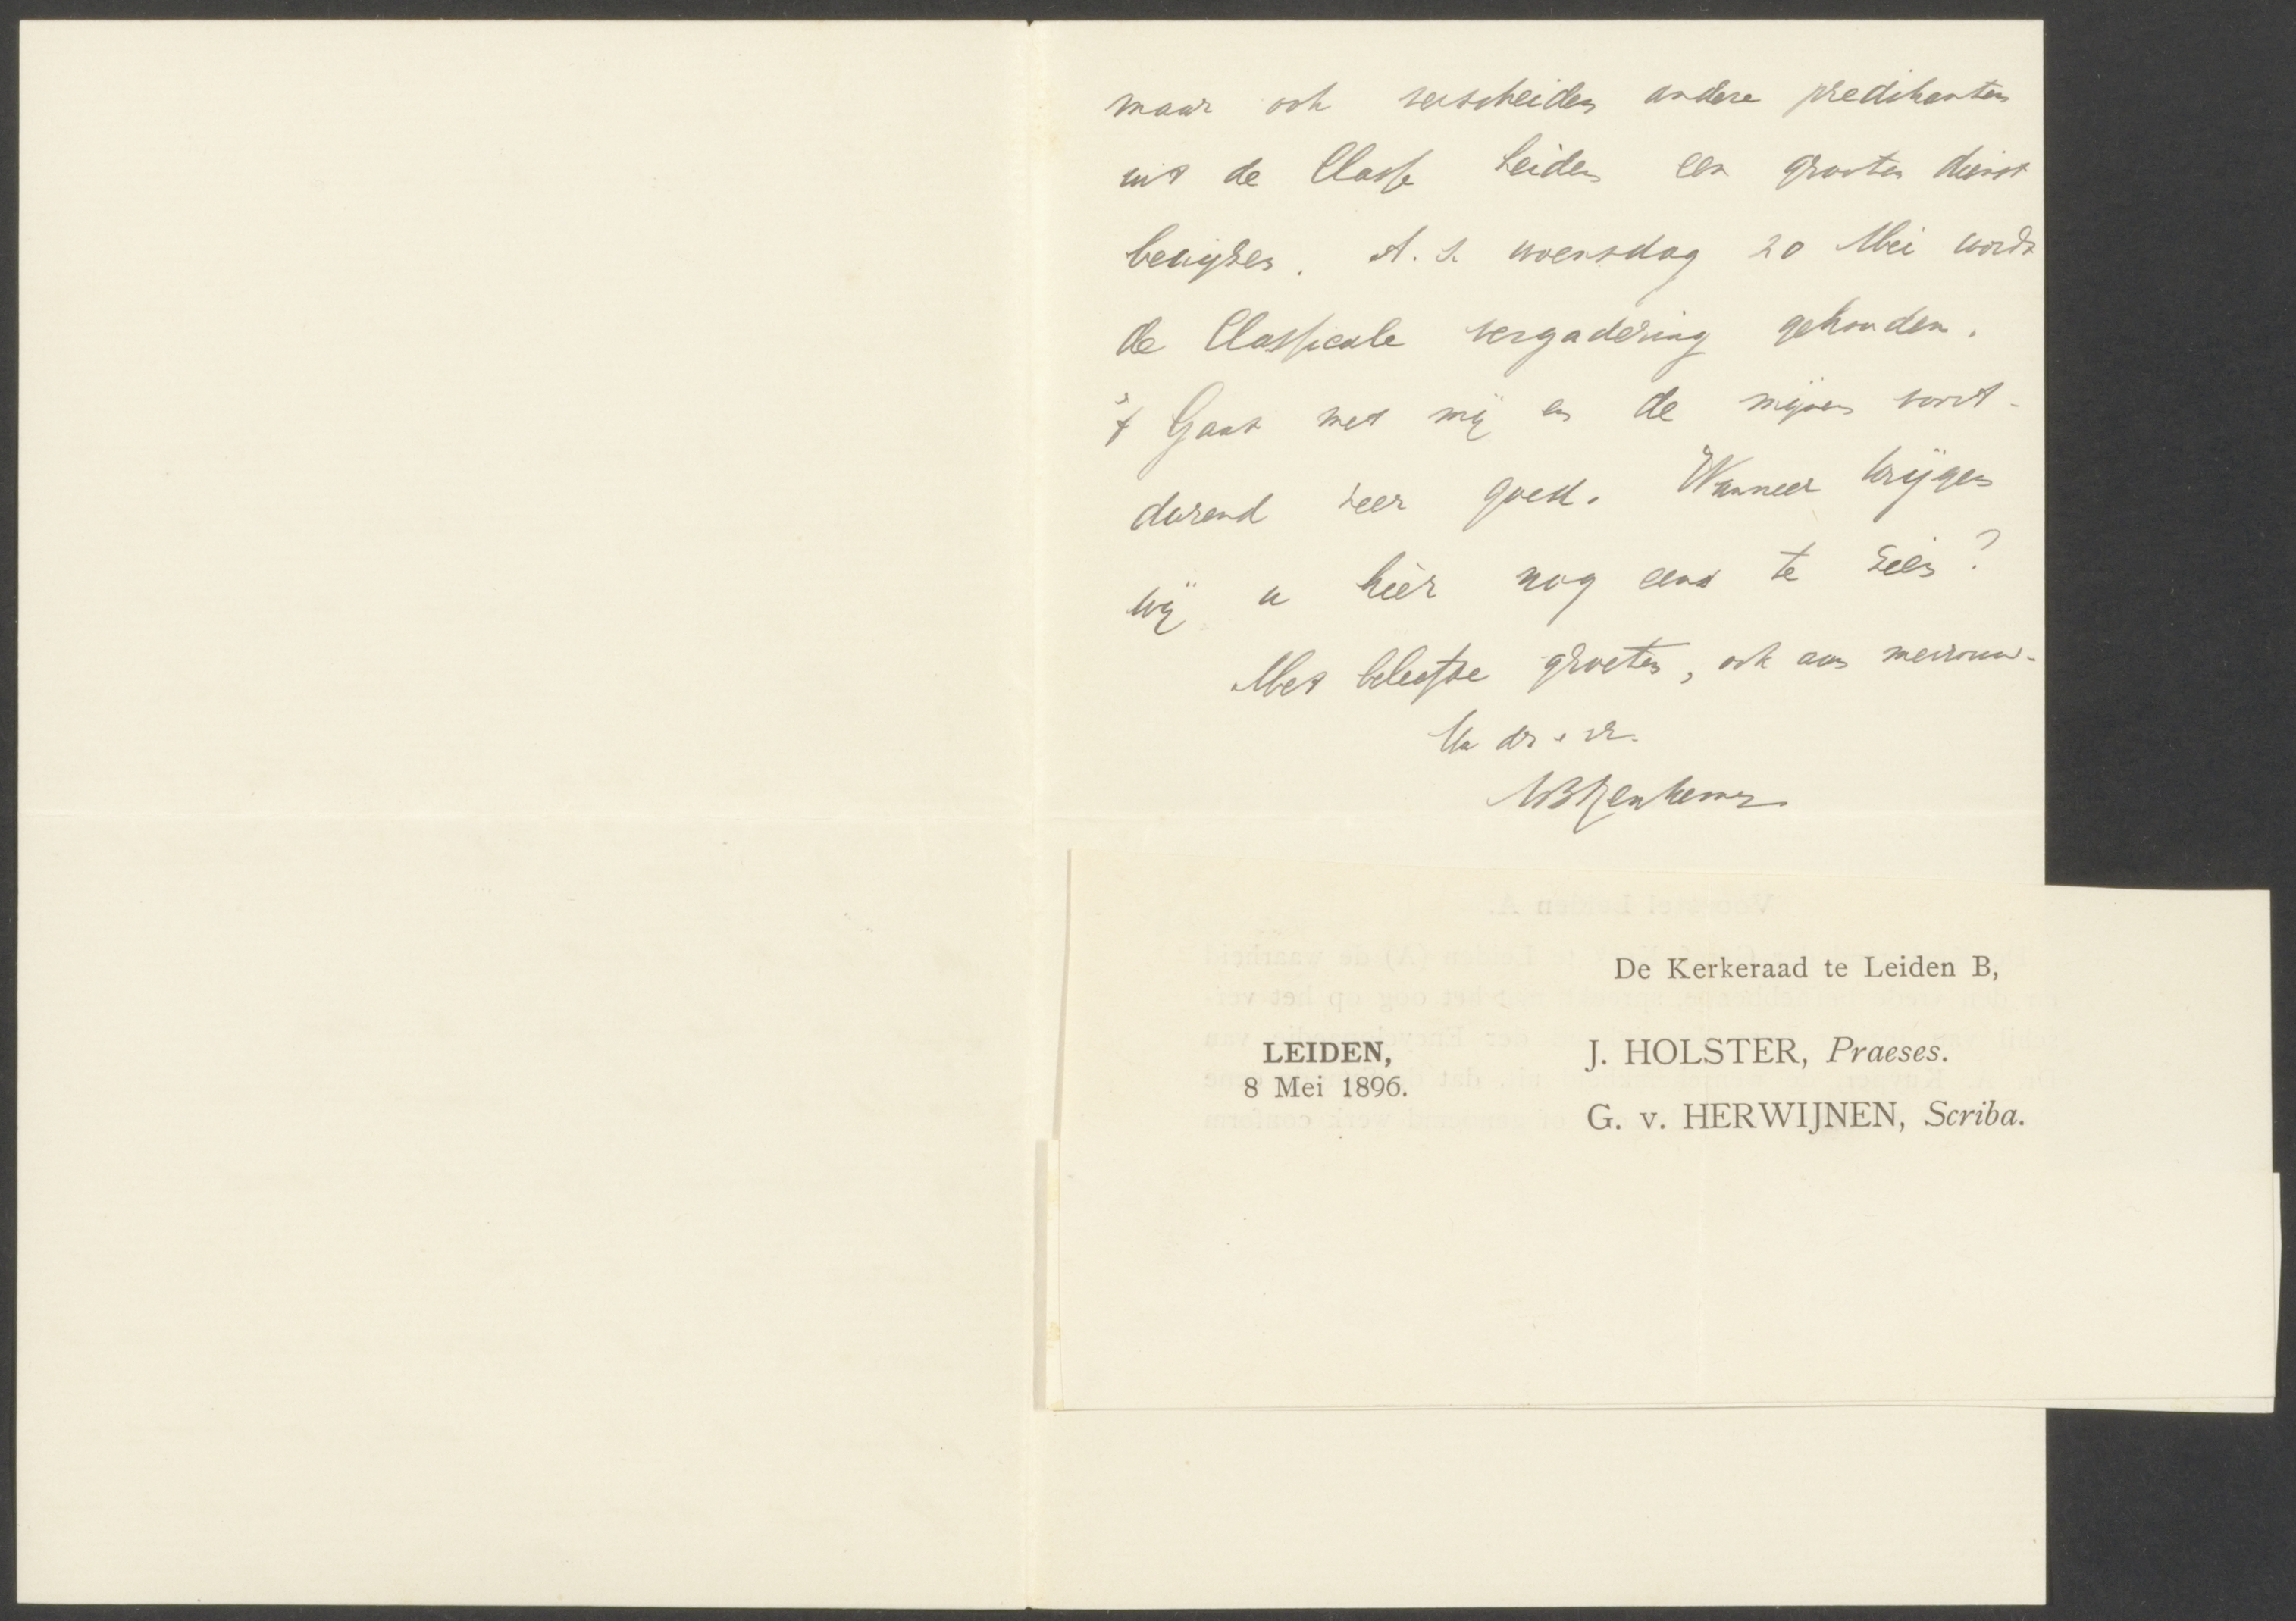 maar ook verscheiden andere predikanten
uit de Classe Leiden een grooten dienst
bewijzen. A.s. woensdag 20 Mei wordt
de Classicale vergadering gehouden.
't Gaat met mij en de mijnen voort-
durend zeer goed. Wanneer krijgen
wij u hier nog eens te zien?
Met beleefde groeten, ook aan mevrouw.
Uw dr. e vr.
De Kerkeraad te Leiden B,
LEIDEN,
8 Mei 1896.
J. HOLSTER, Praeses.
G. v. HERWIJNEN, Scriba.